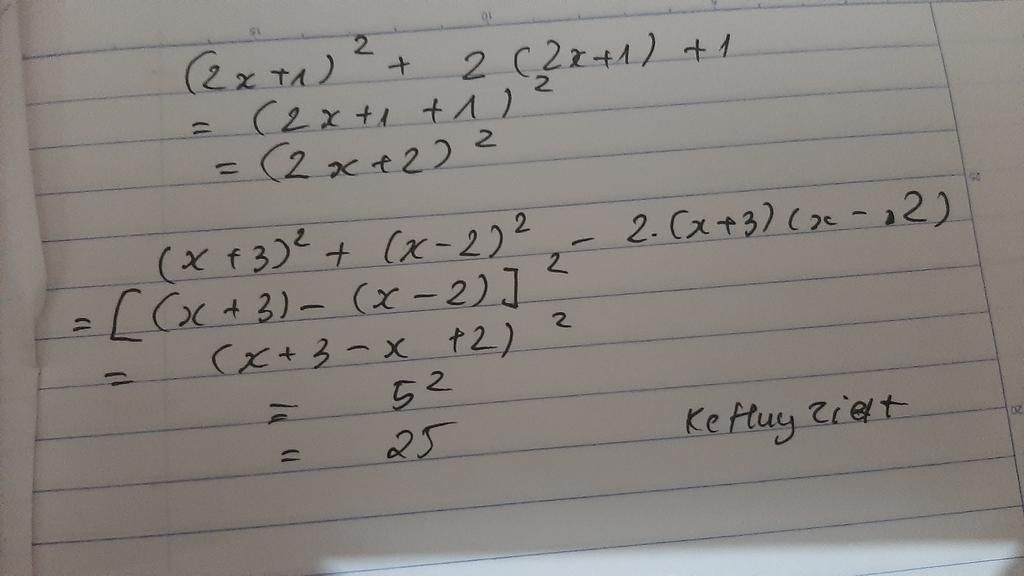 (2x+1)² + 2 (2x+1) +1
= (2x+1 +1)²
= (2x+2)²
(x+3)² + (x-2)² - 2.(x+3)(x-2)
= [(x+3) - (x-2)]²
= (x+3-x+2)²
= 5²
= 25